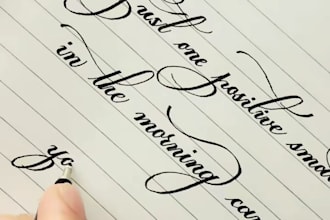 Just one positive sma
in the morning ca
yo